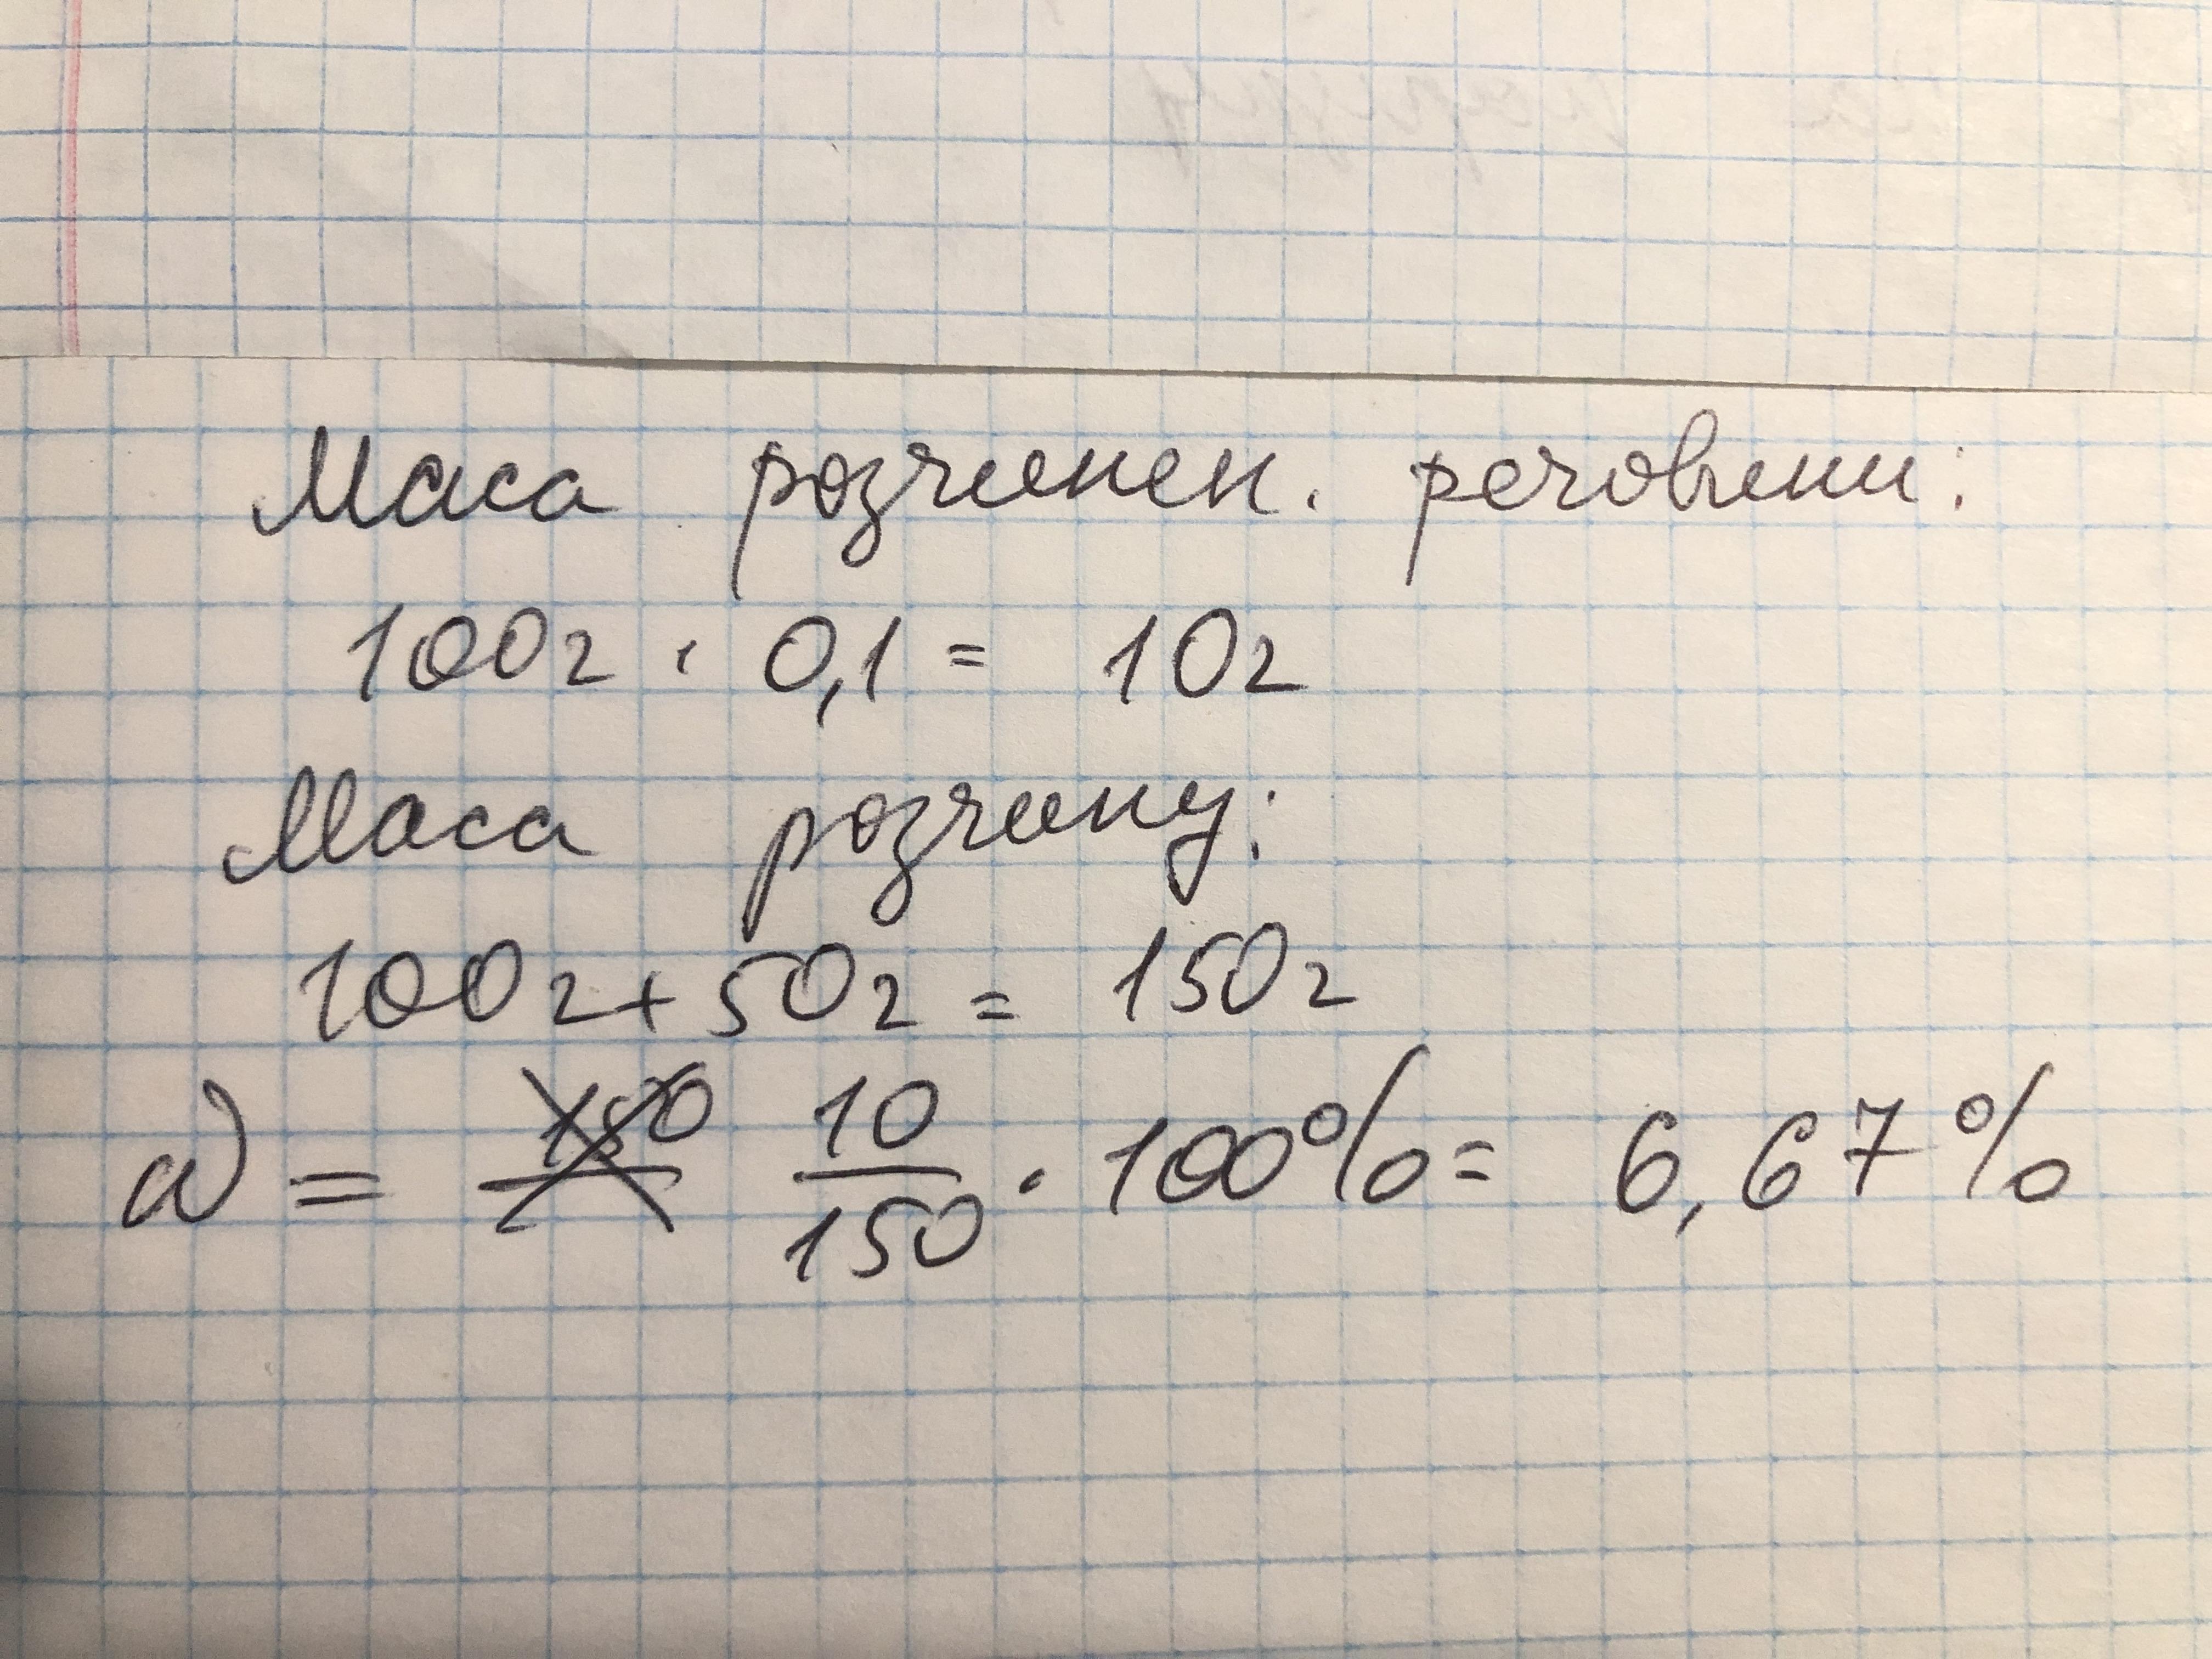 Маса розчинен. речовини:
100г · 0,1 = 10г
Маса розчину:
100г + 50г = 150г
ω = 10/150 · 100% = 6,67%